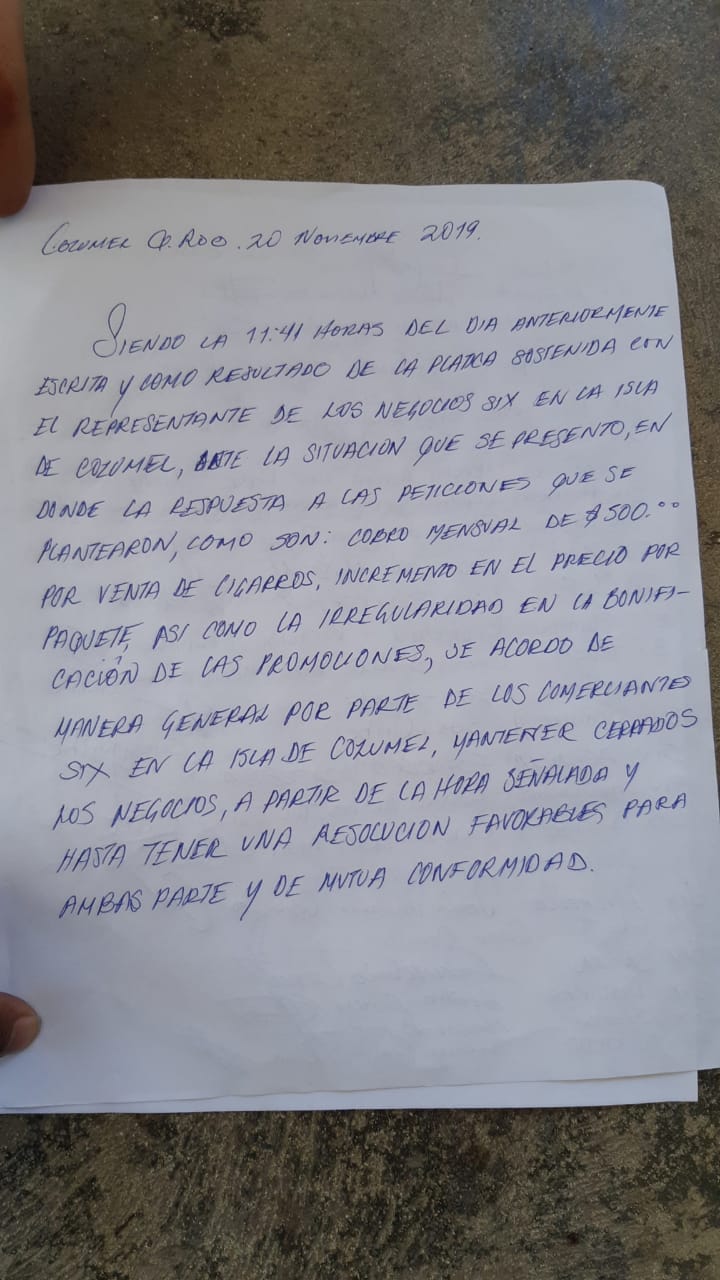 COZUMEL Q.ROO. 20 NOVIEMBRE 2019.
SIENDO LA 11:41 HORAS DEL DIA ANTERIORMENTE
ESCRITA Y COMO RESULTADO DE LA PLATICA SOSTENIDA CON
EL REPRESENTANTE DE LOS NEGOCIOS SIX EN LA ISLA
DE COZUMEL, ANTE LA SITUACION QUE SE PRESENTO, EN
DONDE LA RESPUESTA A LAS PETICIONES QUE SE
PLANTEARON, COMO SON: COBRO MENSUAL DE $500.00
POR VENTA DE CIGARROS, INCREMENTO EN EL PRECIO POR
PAQUETE, ASI COMO LA IRREGULARIDAD EN LA BONIFI-
CACIÓN DE LAS PROMOCIONES, SE ACORDO DE
MANERA GENERAL POR PARTE DE LOS COMERCIANTES
SIX EN LA ISLA DE COZUMEL, MANTENER CERRADOS
LOS NEGOCIOS, A PARTIR DE LA HORA SEÑALADA Y
HASTA TENER UNA RESOLUCION FAVORABLES PARA
AMBAS PARTE Y DE MUTUA CONFORMIDAD.